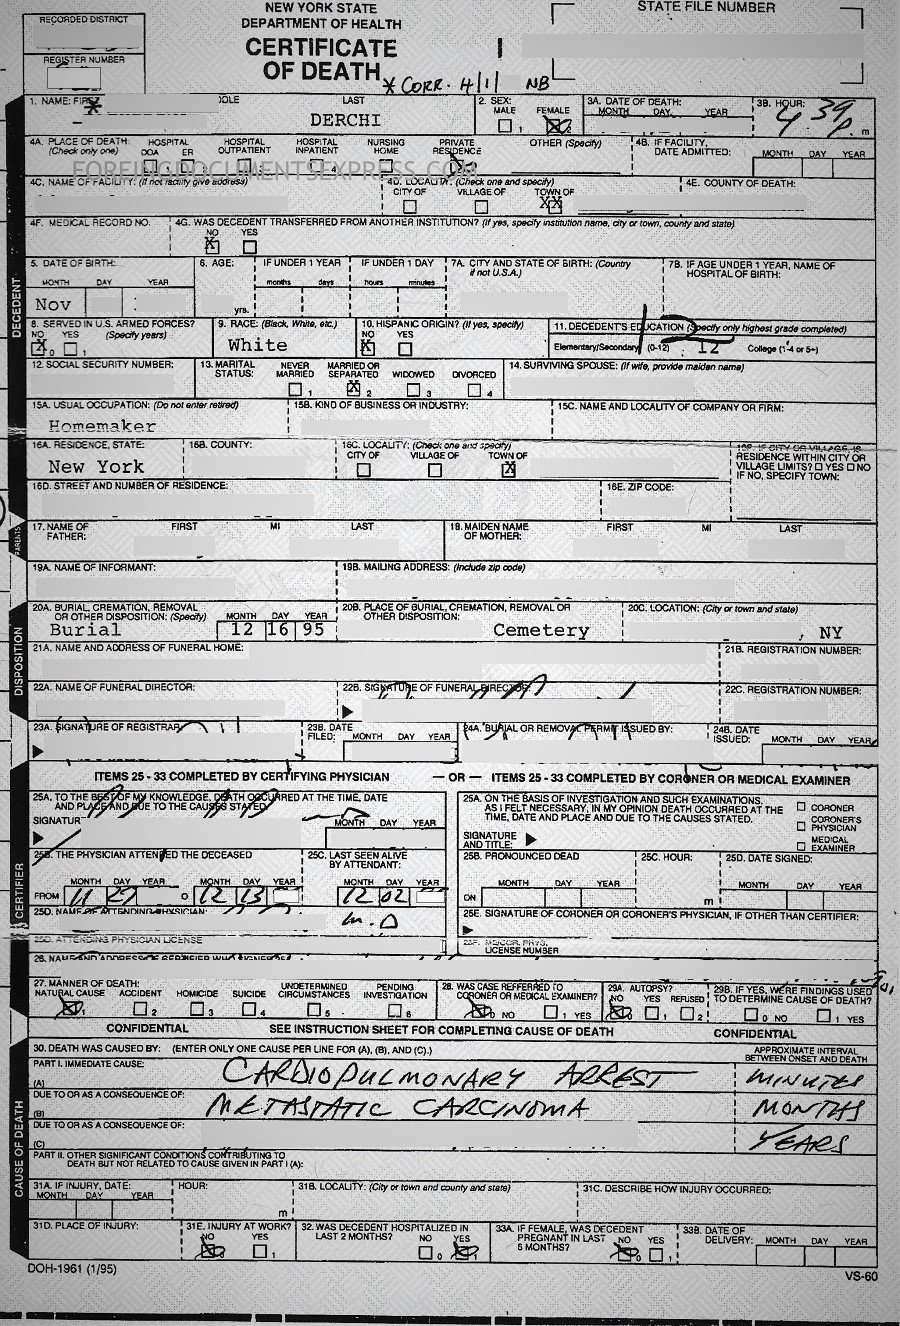 NEW YORK STATE
DEPARTMENT OF HEALTH
CERTIFICATE
OF DEATH
STATE FILE NUMBER
RECORDED DISTRICT
REGISTER NUMBER
* CORR. 4/1/ NB
1. NAME: FIRST LAST
* DERCHI
2. SEX:
MALE FEMALE
1 2
3A. DATE OF DEATH:
MONTH DAY YEAR
3B. HOUR:
4 39 p. m
4A. PLACE OF DEATH:
(Check only one)
HOSPITAL DOA HOSPITAL ER HOSPITAL OUTPATIENT HOSPITAL INPATIENT NURSING HOME PRIVATE RESIDENCE OTHER (Specify)
4B. IF FACILITY,
DATE ADMITTED:
MONTH DAY YEAR
FOREIGNDOCUMENTSEXPRESS.COM
4C. NAME OF FACILITY: (If not facility give address)
4D. LOCALITY: (Check one and specify)
CITY OF VILLAGE OF TOWN OF
XX
4E. COUNTY OF DEATH:
4F. MEDICAL RECORD NO.
4G. WAS DECEDENT TRANSFERRED FROM ANOTHER INSTITUTION? (If yes, specify institution name, city or town, county and state)
NO YES
X
DECEDENT
5. DATE OF BIRTH:
MONTH DAY YEAR
Nov
6. AGE:
yrs.
IF UNDER 1 YEAR
months days
IF UNDER 1 DAY
hours minutes
7A. CITY AND STATE OF BIRTH: (Country
if not U.S.A.)
7B. IF AGE UNDER 1 YEAR, NAME OF
HOSPITAL OF BIRTH:
8. SERVED IN U.S. ARMED FORCES?
NO YES (Specify years)
X 0 1
9. RACE: (Black, White, etc.)
White
10. HISPANIC ORIGIN? (If yes, specify)
NO YES
X
11. DECEDENT'S EDUCATION (Specify only highest grade completed)
Elementary/Secondary (0-12) 12 College (1-4 or 5+)
12
12. SOCIAL SECURITY NUMBER:
13. MARITAL
STATUS:
NEVER MARRIED MARRIED OR SEPARATED WIDOWED DIVORCED
1 X 2 3 4
14. SURVIVING SPOUSE: (If wife, provide maiden name)
15A. USUAL OCCUPATION: (Do not enter retired)
Homemaker
15B. KIND OF BUSINESS OR INDUSTRY:
15C. NAME AND LOCALITY OF COMPANY OR FIRM:
16A. RESIDENCE, STATE:
New York
16B. COUNTY:
16C. LOCALITY: (Check one and specify)
CITY OF VILLAGE OF TOWN OF
X
16F. IF CITY OR VILLAGE, IS
RESIDENCE WITHIN CITY OR
VILLAGE LIMITS? YES NO
IF NO, SPECIFY TOWN:
16D. STREET AND NUMBER OF RESIDENCE:
16E. ZIP CODE:
PARENTS
17. NAME OF
FATHER:
FIRST MI LAST
18. MAIDEN NAME
OF MOTHER:
FIRST MI LAST
19A. NAME OF INFORMANT:
19B. MAILING ADDRESS: (Include zip code)
DISPOSITION
20A. BURIAL, CREMATION, REMOVAL
OR OTHER DISPOSITION: (Specify)
MONTH DAY YEAR
Burial 12 16 95
20B. PLACE OF BURIAL, CREMATION, REMOVAL OR
OTHER DISPOSITION:
Cemetery
20C. LOCATION: (City or town and state)
, NY
21A. NAME AND ADDRESS OF FUNERAL HOME:
21B. REGISTRATION NUMBER:
22A. NAME OF FUNERAL DIRECTOR:
22B. SIGNATURE OF FUNERAL DIRECTOR:
22C. REGISTRATION NUMBER:
23A. SIGNATURE OF REGISTRAR
23B. DATE
FILED:
MONTH DAY YEAR
24A. BURIAL OR REMOVAL PERMIT ISSUED BY:
24B. DATE
ISSUED:
MONTH DAY YEAR
ITEMS 25 - 33 COMPLETED BY CERTIFYING PHYSICIAN — OR — ITEMS 25 - 33 COMPLETED BY CORONER OR MEDICAL EXAMINER
CERTIFIER
25A. TO THE BEST OF MY KNOWLEDGE, DEATH OCCURRED AT THE TIME, DATE
AND PLACE AND DUE TO THE CAUSES STATED
SIGNATUR
MONTH DAY YEAR
25A. ON THE BASIS OF INVESTIGATION AND SUCH EXAMINATIONS,
AS I FELT NECESSARY, IN MY OPINION DEATH OCCURRED AT THE
TIME, DATE AND PLACE AND DUE TO THE CAUSES STATED.
SIGNATURE
AND TITLE:
CORONER
CORONER'S
PHYSICIAN
MEDICAL
EXAMINER
25B. THE PHYSICIAN ATTENDED THE DECEASED
MONTH DAY YEAR MONTH DAY YEAR
FROM 11 27 O 12 13
25C. LAST SEEN ALIVE
BY ATTENDANT:
MONTH DAY YEAR
12 02
25B. PRONOUNCED DEAD
MONTH DAY YEAR
ON
25C. HOUR:
m
25D. DATE SIGNED:
MONTH DAY YEAR
25D. NAME OF ATTENDING PHYSICIAN:
M.D
25E. SIGNATURE OF CORONER OR CORONER'S PHYSICIAN, IF OTHER THAN CERTIFIER:
25D. ATTENDING PHYSICIAN LICENSE
LICENSE NUMBER
26. NAME AND ADDRESS OF CERTIFIER WHO SIGNED
27. MANNER OF DEATH:
NATURAL CAUSE ACCIDENT HOMICIDE SUICIDE UNDETERMINED CIRCUMSTANCES PENDING INVESTIGATION
1 2 3 4 5 6
28. WAS CASE REFERRED TO
CORONER OR MEDICAL EXAMINER?
0 NO 1 YES
29A. AUTOPSY?
NO YES REFUSED
0 1 2
29B. IF YES, WERE FINDINGS USED
TO DETERMINE CAUSE OF DEATH?
0 NO 1 YES
CONFIDENTIAL SEE INSTRUCTION SHEET FOR COMPLETING CAUSE OF DEATH CONFIDENTIAL
CAUSE OF DEATH
30. DEATH WAS CAUSED BY: (ENTER ONLY ONE CAUSE PER LINE FOR (A), (B), AND (C).)
APPROXIMATE INTERVAL
BETWEEN ONSET AND DEATH
PART I. IMMEDIATE CAUSE:
(A) CARDIOPULMONARY ARREST MINUTES
DUE TO OR AS A CONSEQUENCE OF:
(B) METASTATIC CARCINOMA MONTHS
DUE TO OR AS A CONSEQUENCE OF:
(C) YEARS
PART II. OTHER SIGNIFICANT CONDITIONS CONTRIBUTING TO
DEATH BUT NOT RELATED TO CAUSE GIVEN IN PART I (A):
31A. IF INJURY, DATE:
MONTH DAY YEAR
HOUR:
m
31B. LOCALITY: (City or town and county and state)
31C. DESCRIBE HOW INJURY OCCURRED:
31D. PLACE OF INJURY:
31E. INJURY AT WORK?
NO YES
0 1
32. WAS DECEDENT HOSPITALIZED IN
LAST 2 MONTHS?
NO YES
0 1
33A. IF FEMALE, WAS DECEDENT
PREGNANT IN LAST
6 MONTHS?
NO YES
0 1
33B. DATE OF
DELIVERY:
MONTH DAY YEAR
DOH-1961 (1/95)
VS-60